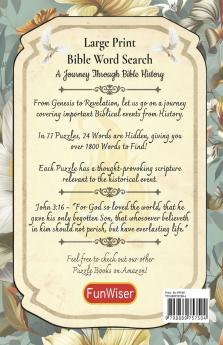 Large Print
Bible Word Search
A Journey Through Bible History
From Genesis to Revelation, let us go on a journey
covering important Biblical events from History.
In 77 Puzzles, 24 Words are Hidden, giving you
over 1800 Words to Find!
Each Puzzle has a thought-provoking scripture
relevant to the historical event.
John 3:16 - "For God so loved the world, that he
gave his only begotten Son, that whosoever believeth
in him should not perish, but have everlasting life."
Feel free to check out our other
Puzzle Books on Amazon!
FunWiser